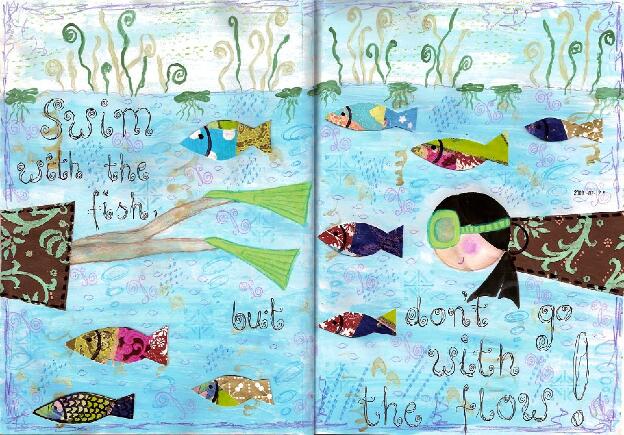 Swim
with the
fish,
but
don't go
with
the flow!